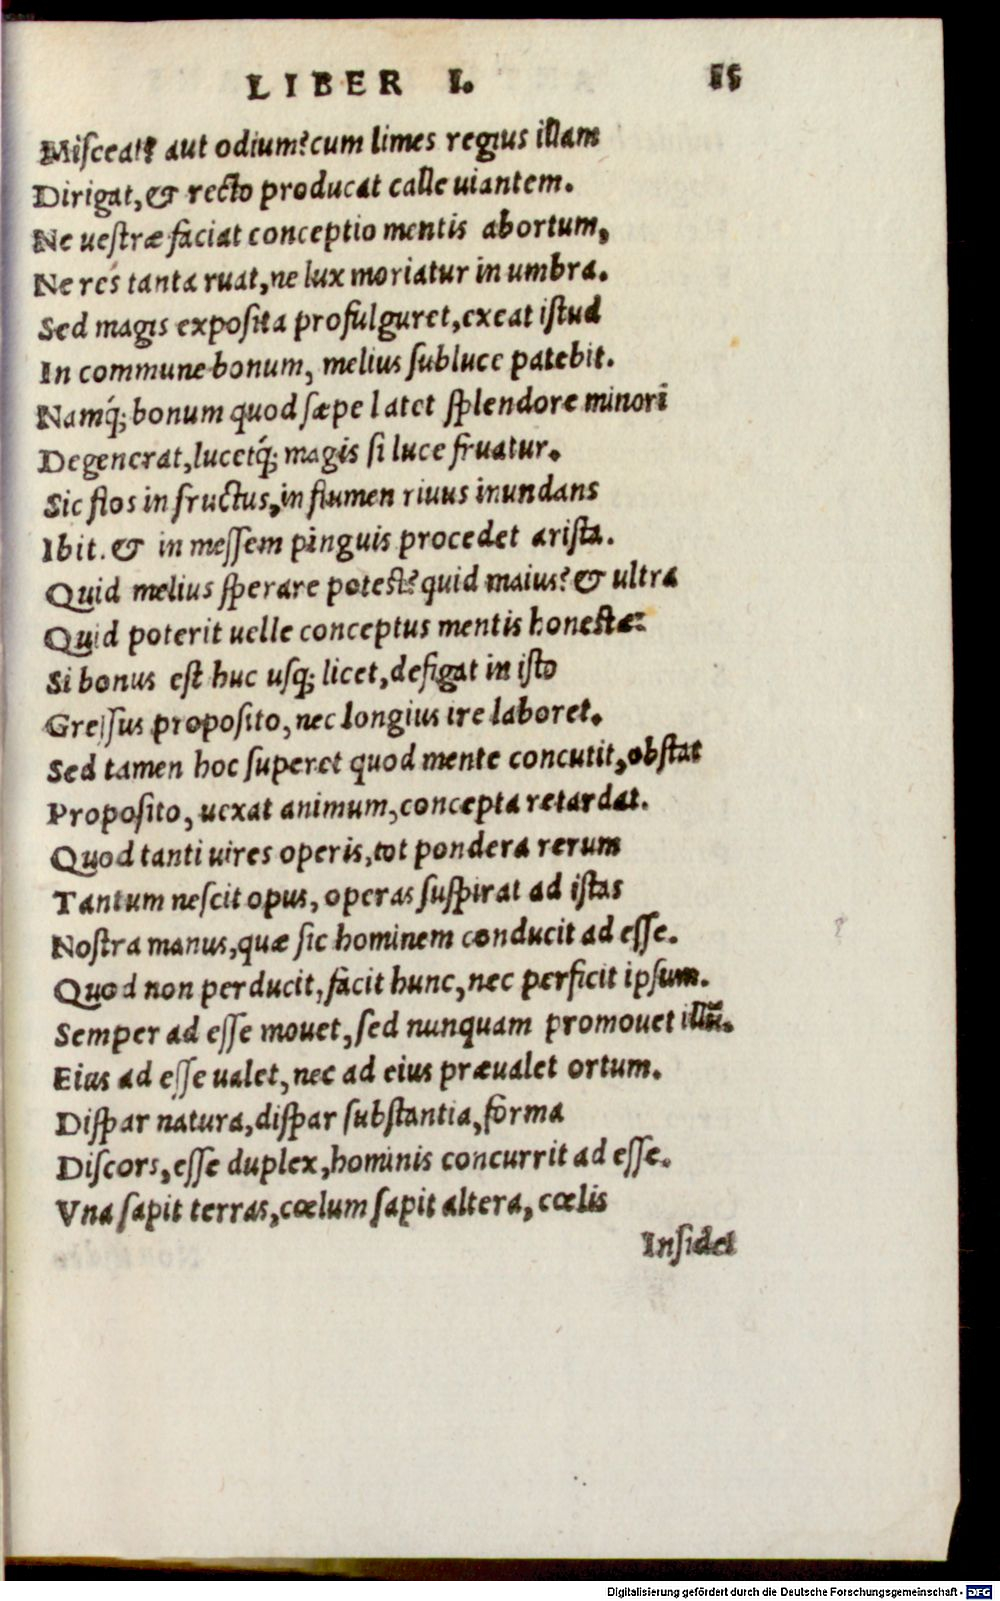 LIBER I. 15
Misceat? aut odium? cum limes regius illam
Dirigat, & recto producat calle uiantem.
Ne uestræ faciat conceptio mentis abortum,
Ne res tanta ruat, ne lux moriatur in umbra.
Sed magis exposita profulguret, exeat istud
In commune bonum, melius sub luce patebit.
Namq́; bonum quod sæpe latet splendore minori
Degenerat, lucetq́; magis si luce fruatur.
Sic flos in fructus, in flumen riuus inundans
Ibit. & in messem pinguis procedet arista.
Quid melius sperare potest? quid maius? & ultra
Quid poterit uelle conceptus mentis honestæ?
Si bonus est huc usq; licet, defigat in isto
Gressus proposito, nec longius ire laboret.
Sed tamen hoc superet quod mente concutit, obstat
Proposito, uexat animum, concepta retardat.
Quod tanti uires operis, tot pondera rerum
Tantum nescit opus, operas suspirat ad istas
Nostra manus, quæ sic hominem conducit ad esse.
Quod non perducit, facit hunc, nec perficit ipsum.
Semper ad esse mouet, sed nunquam promouet illū.
Eius ad esse ualet, nec ad eius præualet ortum.
Dispar natura, dispar substantia, forma
Discors, esse duplex, hominis concurrit ad esse.
Vna sapit terras, cœlum sapit altera, cœlis
Insidet
Digitalisierung gefördert durch die Deutsche Forschungsgemeinschaft - DFG